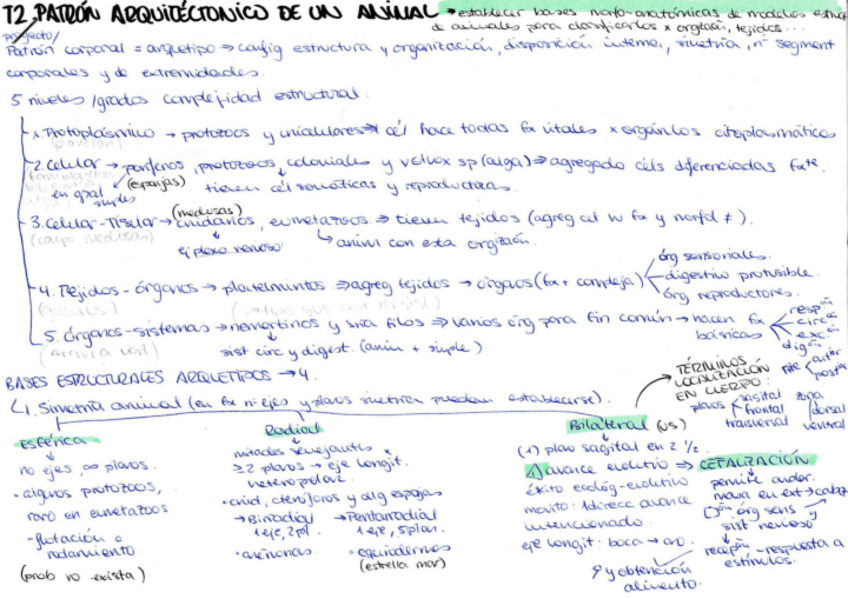 T2. PATRÓN ARQUITÉCTONICO DE UN ANIMAL → establecer bases morfo-anatómicas de modelos estruc
de animales para clasificarlos x orgzaón, tejidos...
proyecto/
Patrón corporal = arquetipo → config estructura y organización, disposición interna, simetría, nº segment
corporales y de extremidades.
5 niveles /grados complejidad estructural.
1. Protoplásmico → protozoos y unicelulares → cél hace todas fx vitales x orgánulos citoplasmáticos
2. Celular → poríferos, protozoos, coloniales y volvox sp (alga) ⇒ agregado céls diferenciadas fxte.
en gral simples (esponjas) tienen cél somáticas y reproductoras.
(medusas)
3. Celular-Tisular → cnidarios, eumetazoos ⇒ tienen tejidos (agreg cel w fx y morfol ≠).
ej plexo nervioso ↳ anim con esta orgzaón.
4. Tejidos-órganos → platelmintos ⇒ agreg tejidos → órganos (fx + compleja)
órg sensoriales.
digestivo protusible.
órg reproductores.
5. Órganos-sistemas → nemertinos y mra filos ⇒ varios órg para fin común → hacen fx básicas
respón
circón
excón
digón
sist circ y digest. (anim + simple)
BASES ESTRUCTURALES ARQUETIPOS → 4.
↳ 1. Simetría animal (en fx nº ejes y planos simetría puedan establecerse).
TÉRMINOS
LOCALIZACIÓN
EN CUERPO:
planos sagital frontal transversal
zona dorsal ventral
pte anter poster
Esférica
no ejes, ∞ planos.
• algunos protozoos,
raro en eumetazoos
- flotación o
rodamiento.
(prob no exista)
Radial
mitades semejantes x
≥ 2 planos → eje longit.
heteropolar.
• cnid, ctenóforos y alg espojas
→ Birradial → Pentarradial
1 eje, 2 pl. 1 eje, 5 plan.
• anémonas. • equidermos
(estrella mar)
Bilateral (us)
(1) plano sagital en 2 ½.
avance evolutivo ⇒ CEFALIZACIÓN
éxito ecológ-evolutivo
movto: 1 direcc avance
intencionado.
eje longit: boca → ano.
permite andar.
masa en ext → cabeza
órg sens
sist nervioso
recepón - respuesta a
estímulos.
y obtención
alimento.